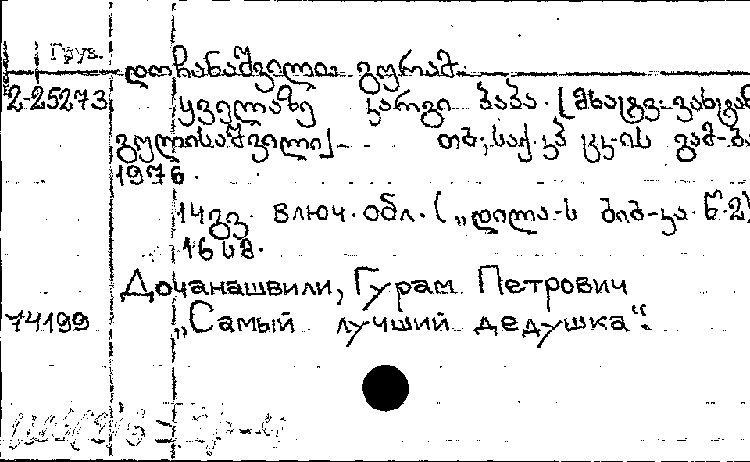 Груз.
დოჩანაშვილი გურამ.
2-25273 ყველაზე კარგი პაპა. [მხატვ. ვახტან
გულისაშვილი] თბ., საქ. კპ ცკ-ის გამ-ბა
1976.
14 გვ. включ. обл. („დილა-ს ბიბ-კა № 2)
16 სმ.
Дочанашвили, Гурам Петрович
74199 „Самый лучший дедушка“.